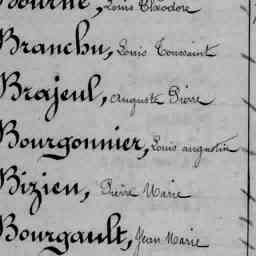 Bourne, Louis Théodore
Branchu, Louis Toussaint
Brajeul, Auguste Pierre
Bourgonnier, Louis augustin
Bizien, Pierre Marie
Bourgault, Jean Marie